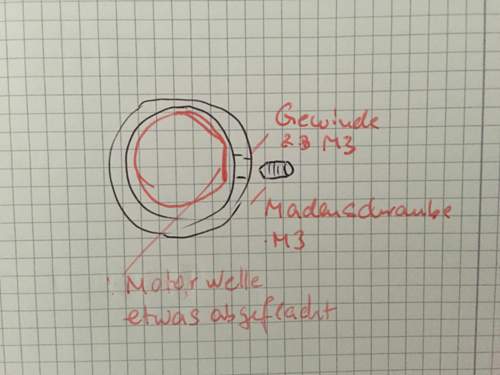 Gewinde
zB M3
Madenschraube
M3
Motorwelle
etwas abgeflacht